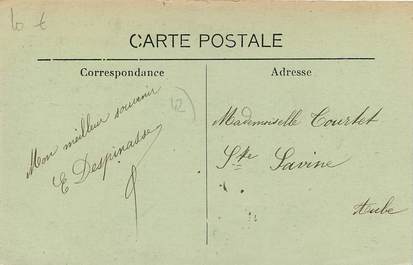 10 €
CARTE POSTALE
Correspondance
Adresse
Mon meilleur souvenir
E Despinasse
12
Mademoiselle Tourlet
Ste Savine
Aube